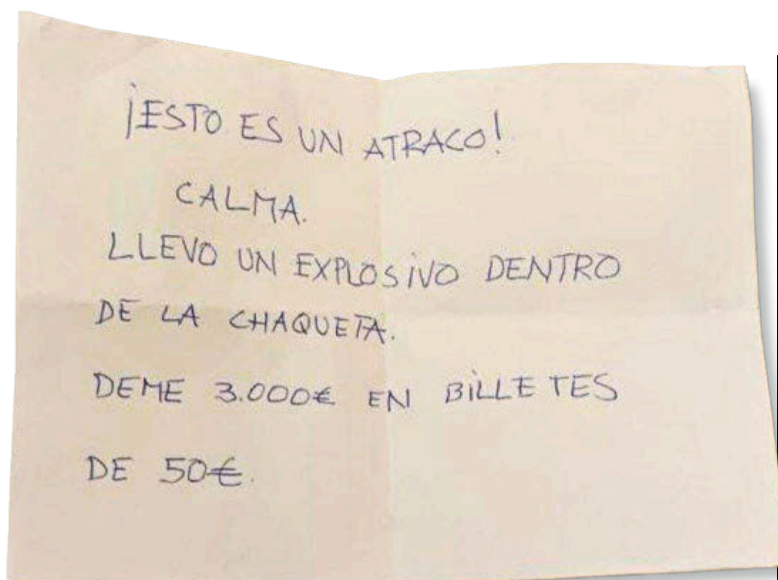 ¡ESTO ES UN ATRACO!
CALMA.
LLEVO UN EXPLOSIVO DENTRO
DE LA CHAQUETA.
DEME 3.000€ EN BILLETES
DE 50€.